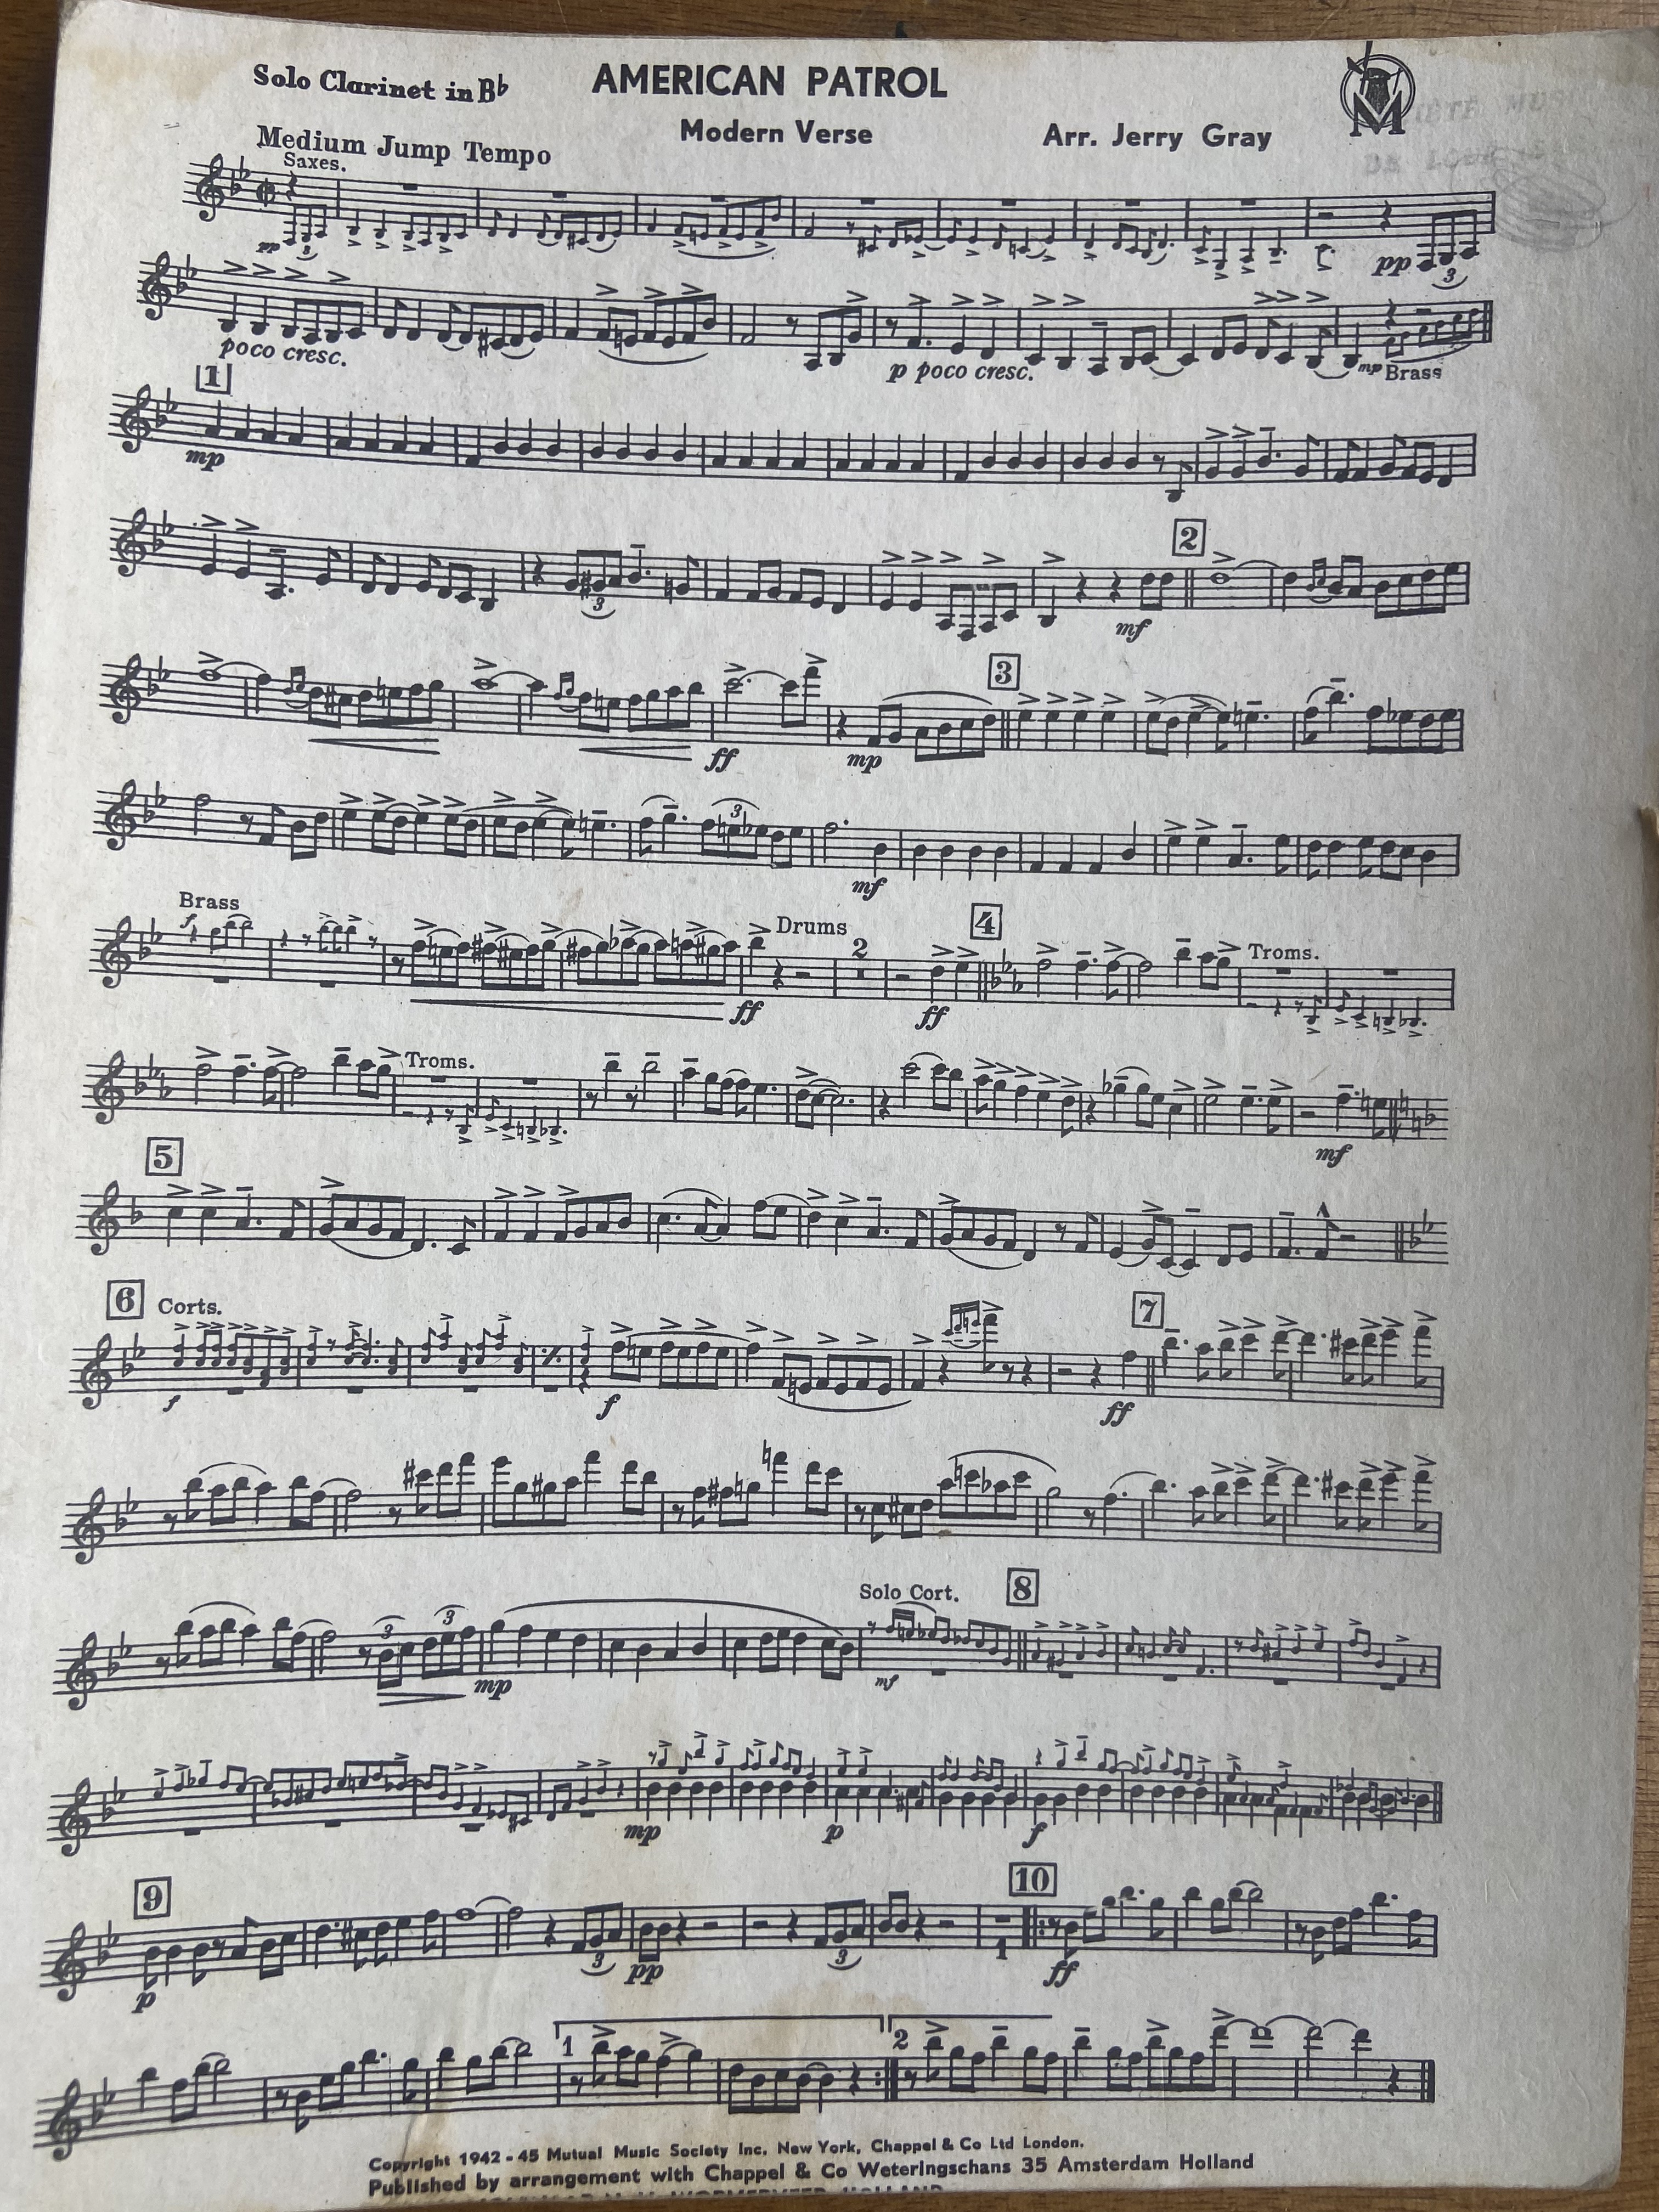 Solo Clarinet in B♭
AMERICAN PATROL
Modern Verse
Arr. Jerry Gray
M
Medium Jump Tempo
Saxes.
pp
3
pp
3
poco cresc.
p poco cresc.
mp Brass
1
mp
2
3
mf
3
ff
mp
3
mf
Brass
f
Drums
2
4
Troms.
ff
ff
Troms.
mf
5
6 Corts.
7
f
f
ff
Solo Cort.
8
3
3
mp
mf
mp
p
f
9
10
3
3
1
p
pp
ff
1
2
Copyright 1942-45 Mutual Music Society Inc. New York, Chappel & Co Ltd London.
Published by arrangement with Chappel & Co Weteringschans 35 Amsterdam Holland